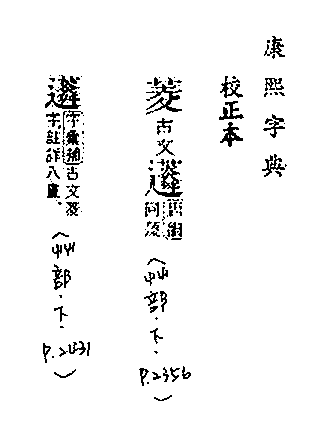 康熙字典
校正本
菱
古文
蓤
同菱
(艸部.下.
P.2356)
字彙補古文蔆
字註詳八畫.
(艸部.下.
P.2431)